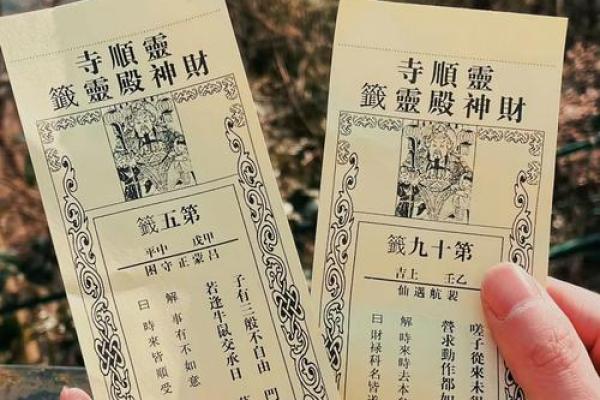 靈順寺
財神殿靈籤
第五籤
甲戊 中平
呂蒙正守困
子有三般不自由 門
若逢牛鼠交承日
解 事有不如意
曰 時來皆順受
靈順寺
財神殿靈籤
第十九籤
乙壬 上吉
裴航遇仙
嗟子從來未
營求動作都如
解 時來時去木
曰 財祿科名皆